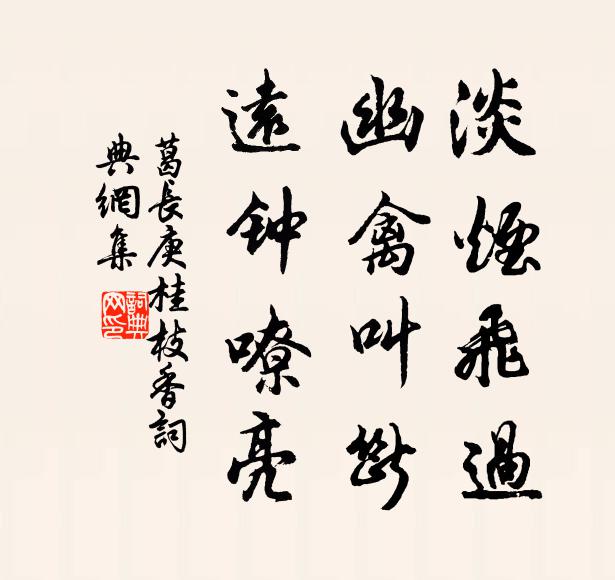 淡煙飛過
幽禽叫斷
遠钟嘹亮
葛長庚桂枝香詞
典網集
詞典网印